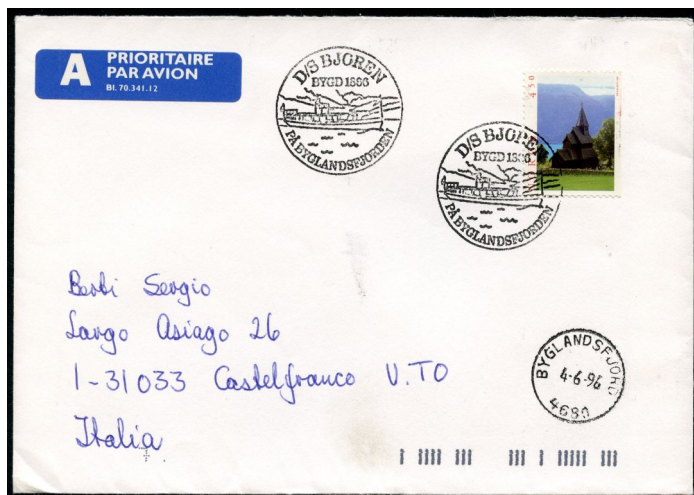 A PRIORITAIRE
PAR AVION
Bl. 70.341.12
D/S BJOREN
BYGD 1866
PÅ BYGLANDSFJORDEN
D/S BJOREN
BYGD 1866
PÅ BYGLANDSFJORDEN
450
Berti Sergio
Largo Asiago 26
I-31033 Castelfranco V.TO
Italia
BYGLANDSFJORD
4-6-96
4680